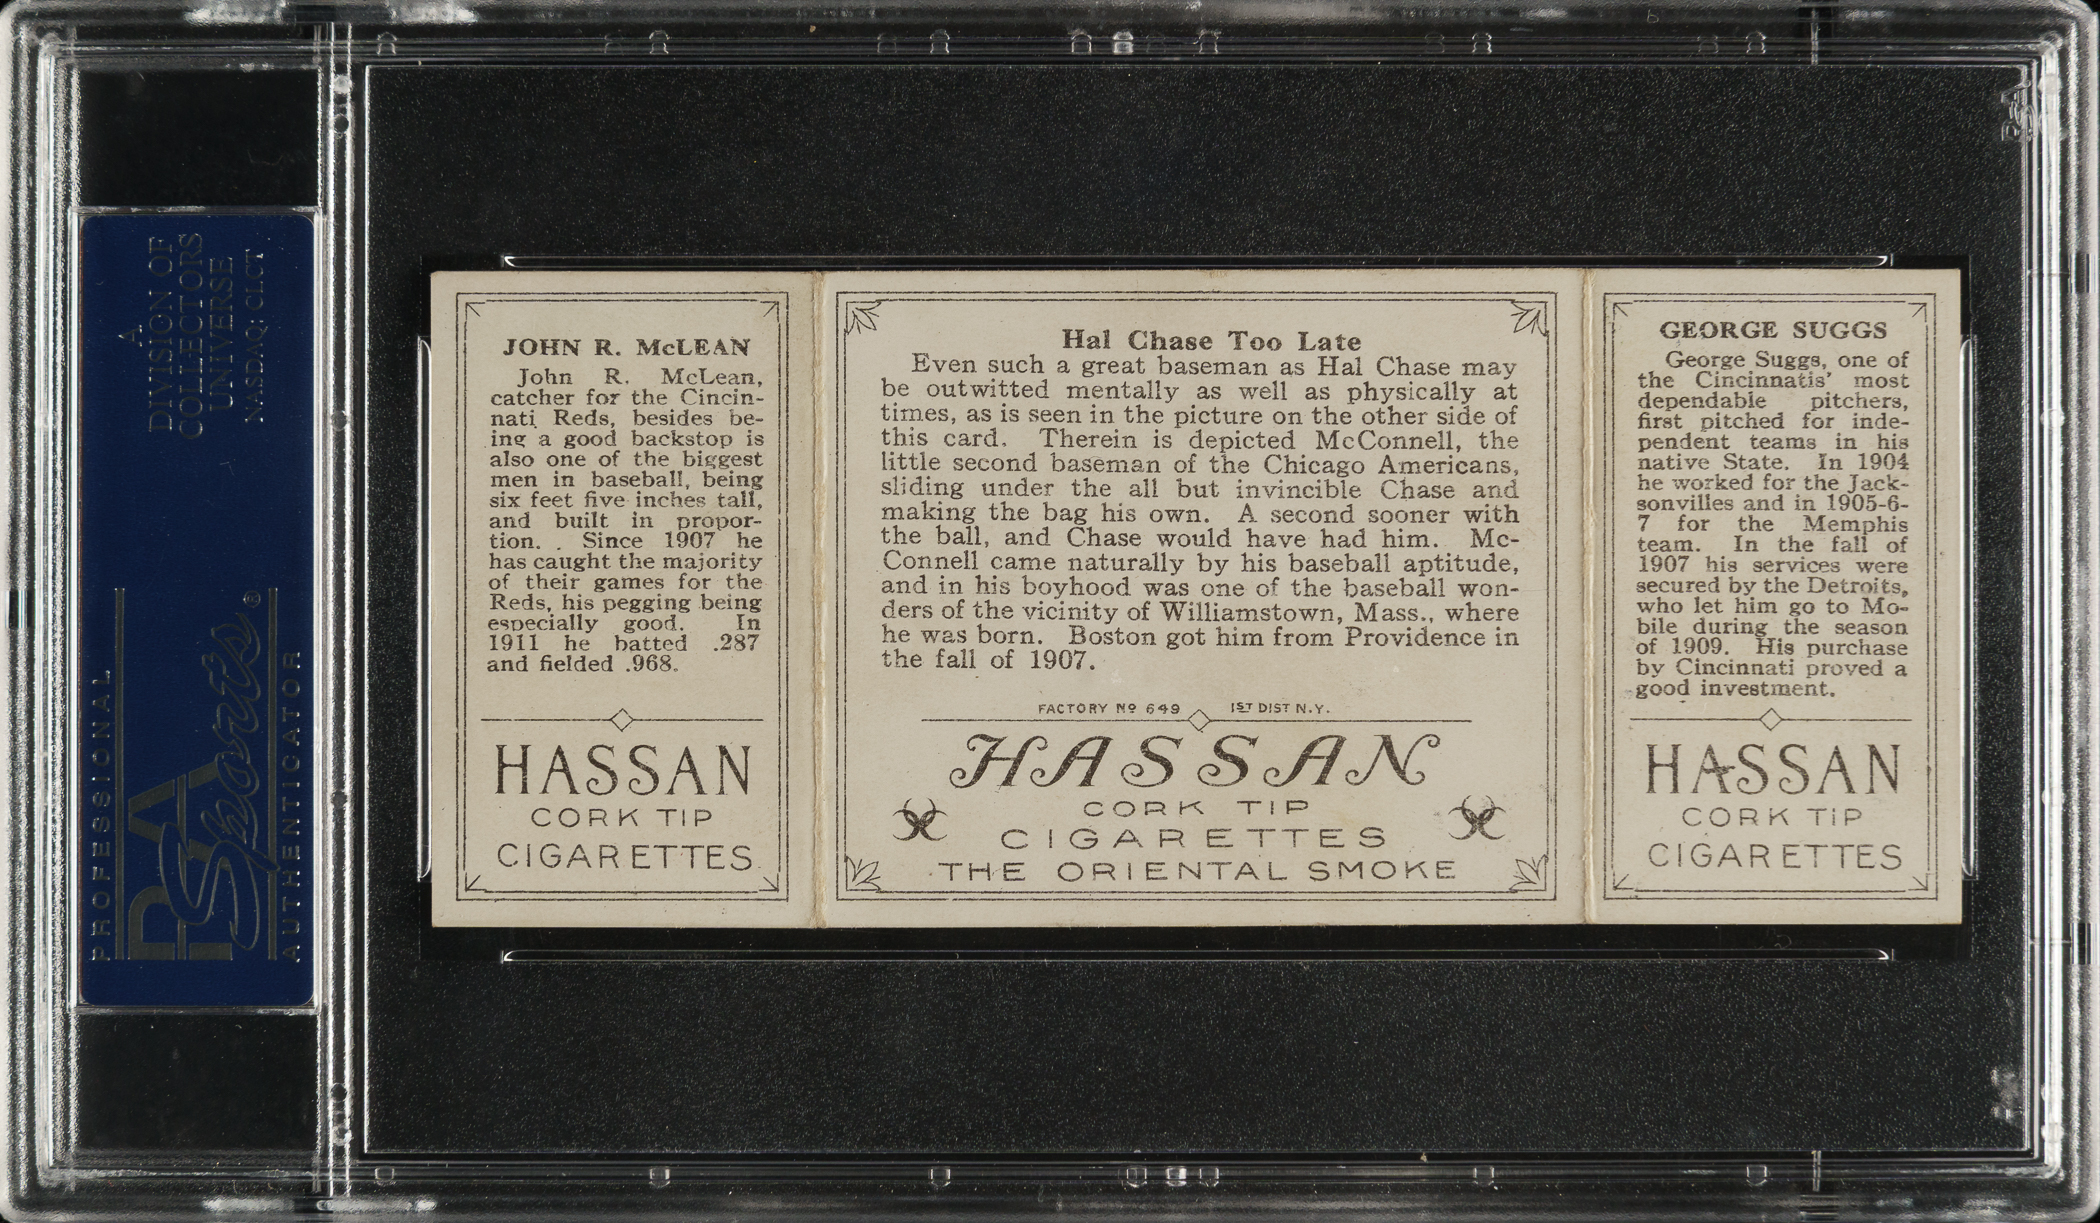 A
DIVISION OF
COLLECTORS
UNIVERSE
NASDAQ: CLCT
PROFESSIONAL
PSA
Sports®
AUTHENTICATOR
JOHN R. McLEAN
John R. McLean,
catcher for the Cincin-
nati Reds, besides be-
ing a good backstop is
also one of the biggest
men in baseball, being
six feet five inches tall,
and built in propor-
tion. . Since 1907 he
has caught the majority
of their games for the
Reds, his pegging being
especially good. In
1911 he batted .287
and fielded .968.
HASSAN
CORK TIP
CIGARETTES
Hal Chase Too Late
Even such a great baseman as Hal Chase may
be outwitted mentally as well as physically at
times, as is seen in the picture on the other side of
this card. Therein is depicted McConnell, the
little second baseman of the Chicago Americans,
sliding under the all but invincible Chase and
making the bag his own. A second sooner with
the ball, and Chase would have had him. Mc-
Connell came naturally by his baseball aptitude,
and in his boyhood was one of the baseball won-
ders of the vicinity of Williamstown, Mass., where
he was born. Boston got him from Providence in
the fall of 1907.
FACTORY Nº 649 1ST DIST N.Y.
HASSAN
CORK TIP
CIGARETTES
THE ORIENTAL SMOKE
GEORGE SUGGS
George Suggs, one of
the Cincinnatis' most
dependable pitchers,
first pitched for inde-
pendent teams in his
native State. In 1904
he worked for the Jack-
sonvilles and in 1905-6-
7 for the Memphis
team. In the fall of
1907 his services were
secured by the Detroits,
who let him go to Mo-
bile during the season
of 1909. His purchase
by Cincinnati proved a
good investment.
HASSAN
CORK TIP
CIGARETTES